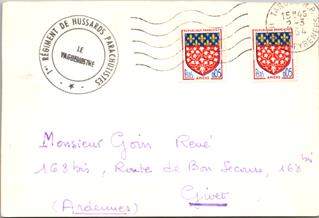 1er RÉGIMENT DE HUSSARDS PARACHUTISTES
LE
VAGUEMESTRE
15H45
-3
RÉPUBLIQUE FRANÇAISE
0,05
AMIENS
RÉPUBLIQUE FRANÇAISE
0,05
AMIENS
Monsieur Goin René
168 bis, Route de Bon Secours, 168 bis
Givet
(Ardennes)